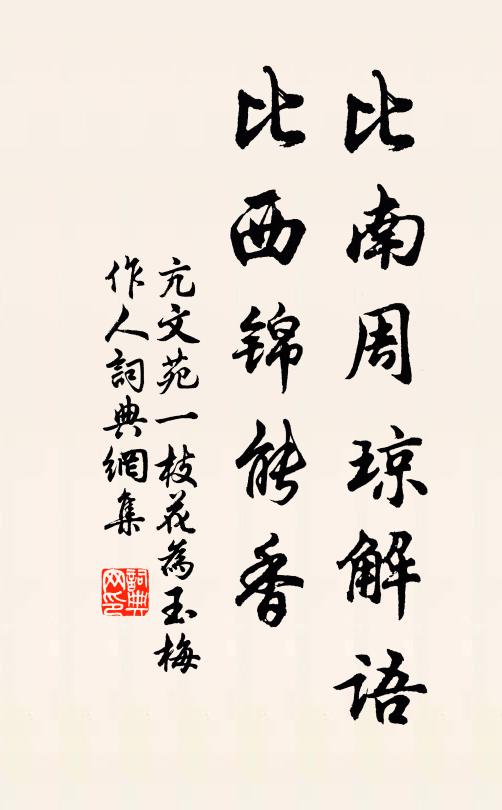 比南周琼解语
比西锦能香
亢文苑一枝花為玉梅
作人詞典網集
詞典网印